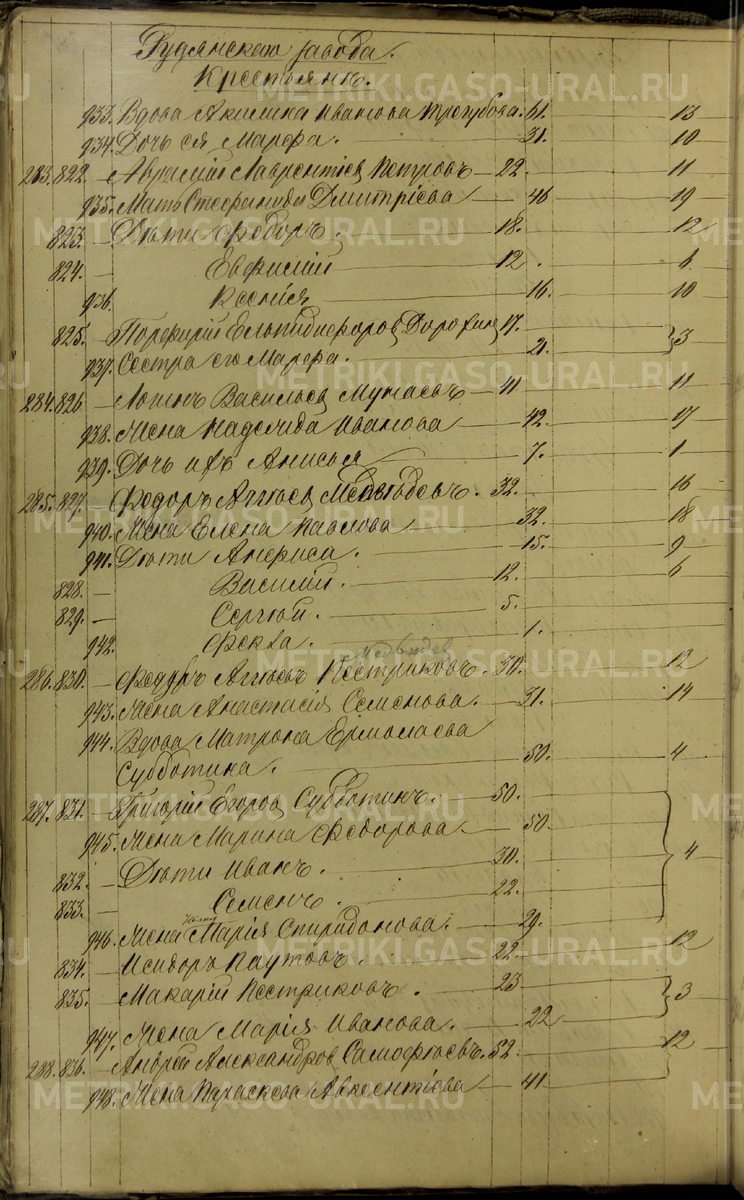 Рудянскаго завода.
Крестьянъ.
933. Вдова Акилина Иванова Трегубова. 61. 13
934. Дочь ея Марфа. 31. 10
283. 822. Лаврентіев Петровъ 22. 11
935. Мать Стефанида Дмитріева 46 19
823. Дѣти Ѳедоръ. 18. 12
824. Евфимій 12. 6
936. Ксенія 16. 10
825. Порфирій Елпидифоров 17.
937. Сестра его Марфа. 21. 3
284. 826 Логинъ Васильев 41 11
938. Жена Надежда Иванова 42. 17
939. Дочь ихъ Анисья 7. 1
285. 827. Ѳедоръ Аггѣев Медвѣдевъ. 32. 16
940. Жена Елена Павлова 32. 18
941. Дѣти Анфиса. 15. 9
828. Василій. 12. 6
829. Сергѣй. 5.
942. Ѳекла. 1.
Медведев
286. 830. Ѳедоръ Аггѣевъ Пестриковъ. 30. 12
943. Жена Анастасія Семенова. 31. 14
944. Вдова Матрона Ермолаева
Субботина. 50. 4
287. 831. Григорій Егоров Субботинъ. 50.
945. Жена Марина Ѳедорова 50.
832. Дѣти Иванъ. 30. 4
833. Семенъ. 22.
946. Жена Марія Спиридонова. 29.
834. Исидоръ Паутовъ. 22. 12
835. Макарій Пестриковъ. 23
947. Жена Марія Иванова. 22 3
288. 836. Андрей Александров Самофѣевъ. 52. 12
948. Жена Параскева Авксентіева 41
METRIKI.GASO-URAL.RU